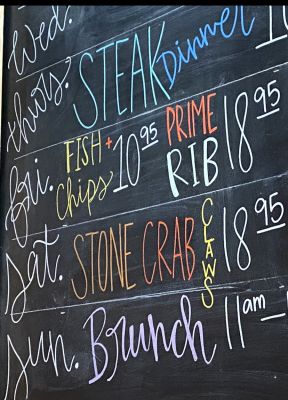 Wed.
Thurs. STEAK Dinner
Fri. FISH + Chips 10 95 PRIME RIB 18 95
Sat. STONE CRAB CLAWS 18 95
Sun. Brunch 11am -